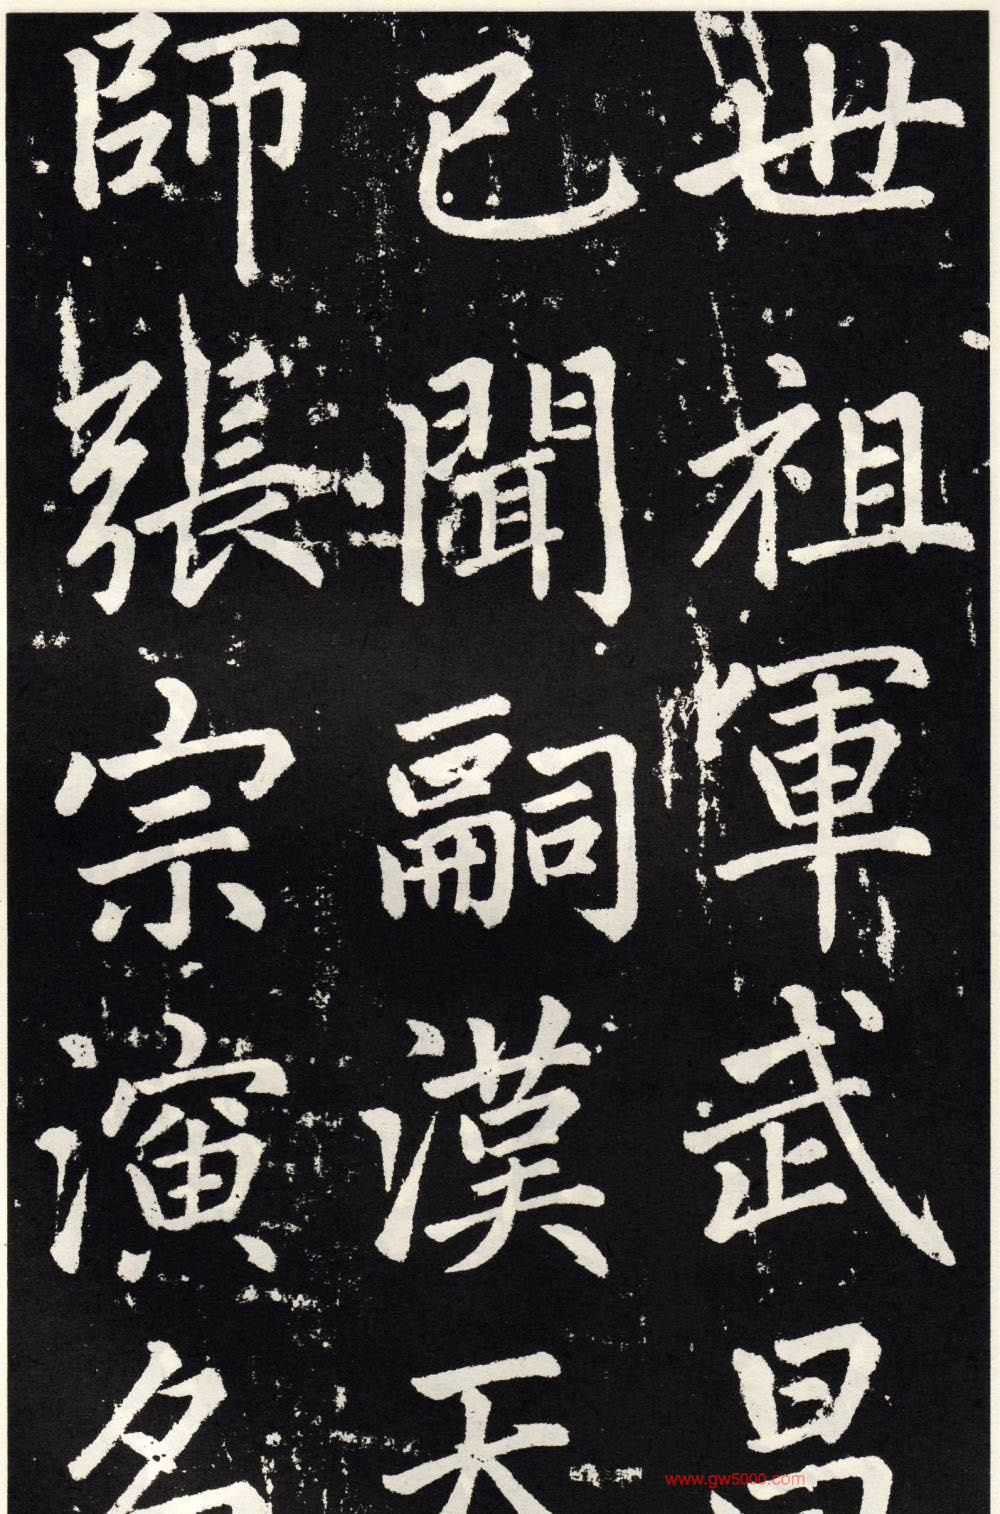 世祖惲武昌
已聞嗣漢天
師張宗演名
www.gw5000.com